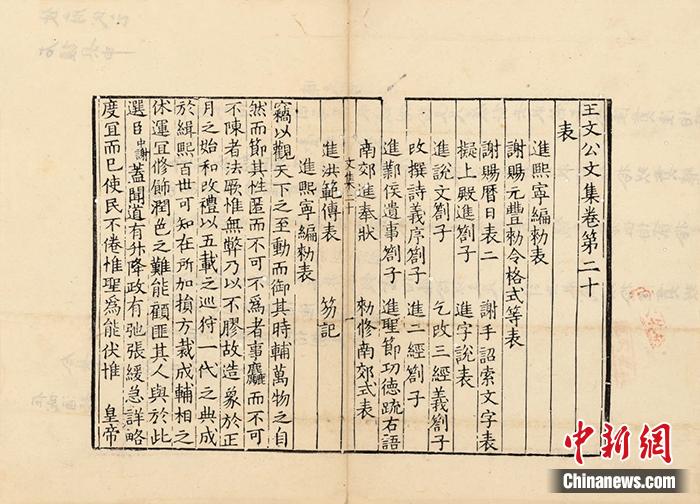 王文公文集卷第二十
表
進熙寧編勑表
謝賜元豐勑令格式等表
謝賜曆日表二 謝手詔索文字表
擬上殿進劄子 進字說表
進說文劄子 乞改三經義劄子
改撰詩義序劄子 進二經劄子
進鄴侯遺事劄子 進聖節功德疏右語
南郊進奉狀 勑修南郊式表
文集二十 一
進洪範傳表 笏記
進熙寧編勑表
竊以觀天下之至動而御其時輔萬物之自
然而節其性匿而不可不爲者事麤而不可
不陳者法厥惟無弊乃以不膠故造象於正
月之始和改禮以五載之巡狩一代之典成
於緝熙百世可知在所加損方裁成輔相之
休運宜修飾潤色之難能顧匪其人與於此
選臣中謝蓋聞道有升降政有弛張緩急詳略
度宜而已使民不倦惟聖爲能伏惟 皇帝
中新網
Chinanews.com